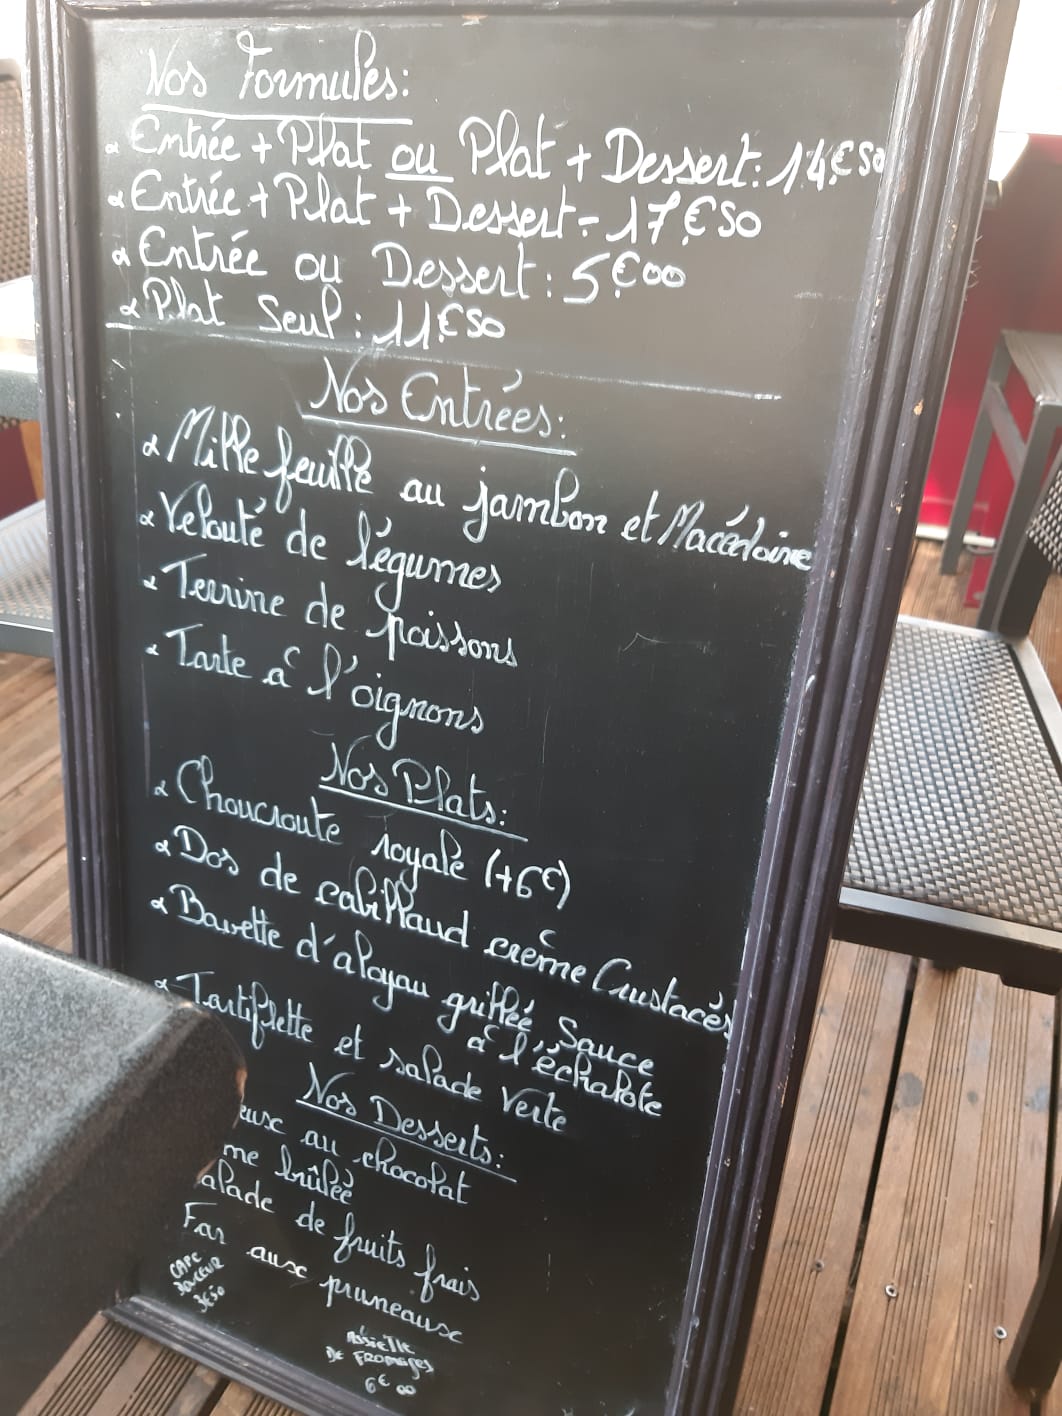 Nos Formules:
Entrée + Plat ou Plat + Dessert: 14€50
Entrée + Plat + Dessert - 17€50
Entrée ou Dessert: 5€00
Plat Seul: 11€50
Nos Entrées:
Mille feuille au jambon et Macédoine
Velouté de légumes
Terrine de poissons
Tarte à l'oignons
Nos Plats:
Choucroute royale (+6€)
Dos de cabillaud crème Crustacés
Bavette d'aloyau grillée Sauce
à l'échalote
Tartiflette et salade verte
Nos Desserts:
euse au chocolat
me brûlée
alade de fruits frais
Far aux pruneaux
CAFE
DOUCEUR
3€50
ASSIETTE
DE FROMAGES
6€00